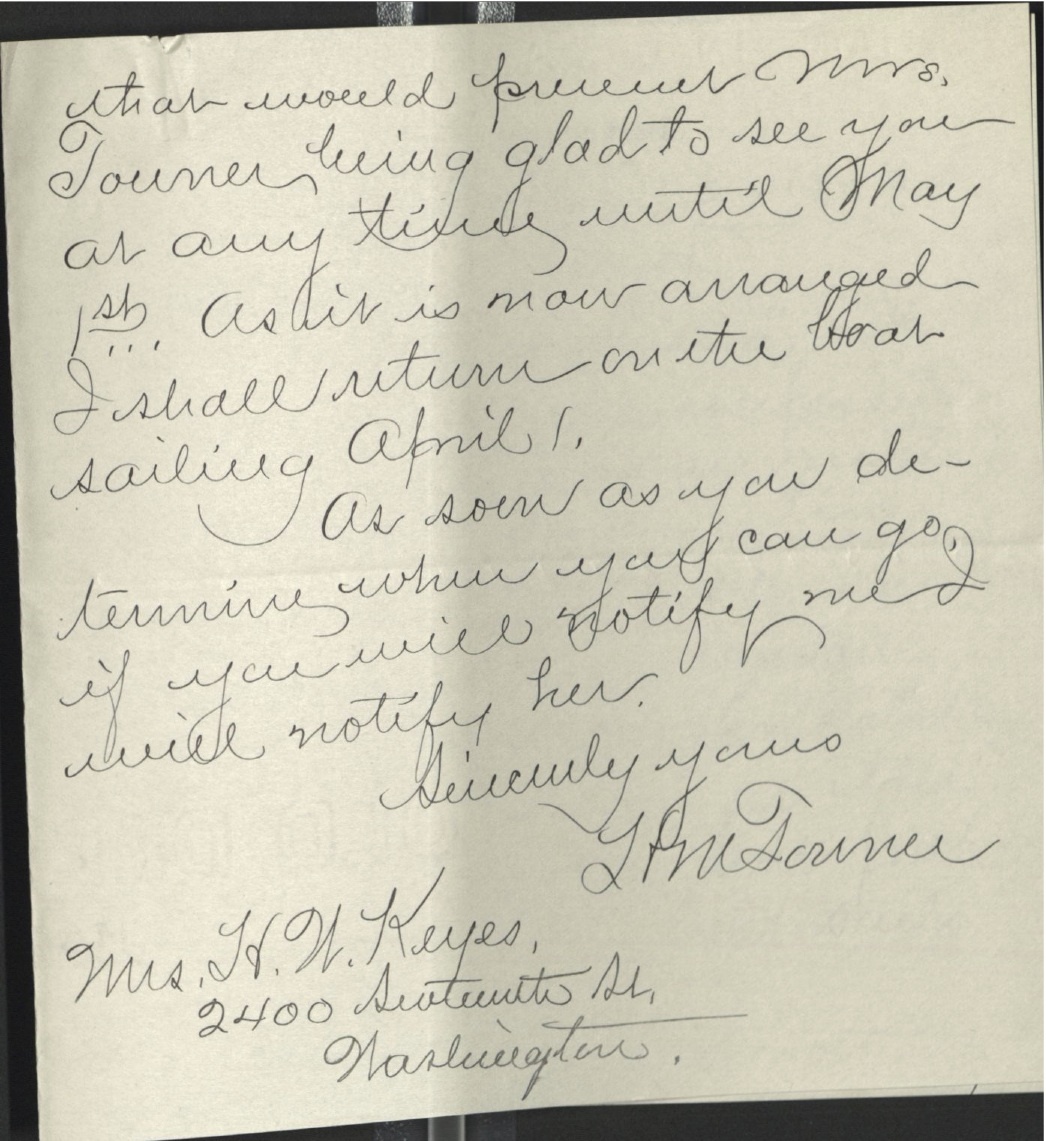 that would prevent Mrs.
Towner being glad to see you
at any time until May
1st. As it is now arranged
I shall return on the boat
sailing April 1.
As soon as you de-
termine when you can go,
if you will notify me I
will notify her.
Sincerely yours
H M Towner
Mrs. H. W. Keyes,
2400 Sixteenth St.
Washington.